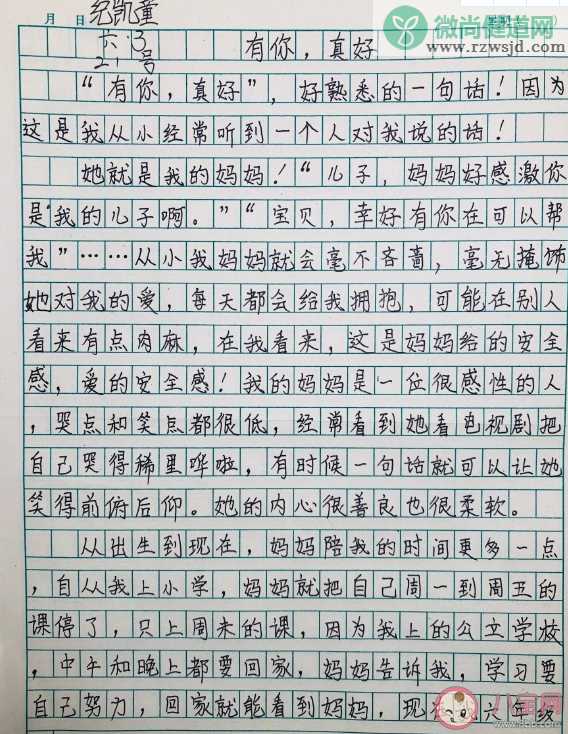 纪凯童
月 日
微尚健康网
www.rzwsjd.com
六.3
21号
有你，真好
“有你，真好”，好熟悉的一句话！因为
这是我从小经常听到一个人对我说的话！
她就是我的妈妈！“儿子，妈妈好感激你
是“我的儿子啊。”“宝贝，幸好有你在可以帮
我”……从小我妈妈就会毫不吝啬，毫无掩饰
她对我的爱，每天都会给我拥抱，可能在别人
看来有点肉麻，在我看来，这是妈妈给的安全
感，爱的安全感！我的妈妈是一位很感性的人
，哭点和笑点都很低，经常看到她看电视剧把
自己哭得稀里哗啦，有时候一句话就可以让她
笑得前俯后仰。她的内心很善良也很柔软。
从出生到现在，妈妈陪我的时间更多一点
，自从我上小学，妈妈就把自己周一到周五的
课停了，只上周末的课，因为我上的公立学校
，中午和晚上都要回家，妈妈告诉我，学习要
自己努力，回家就能看到妈妈，现 六年级
八宝网